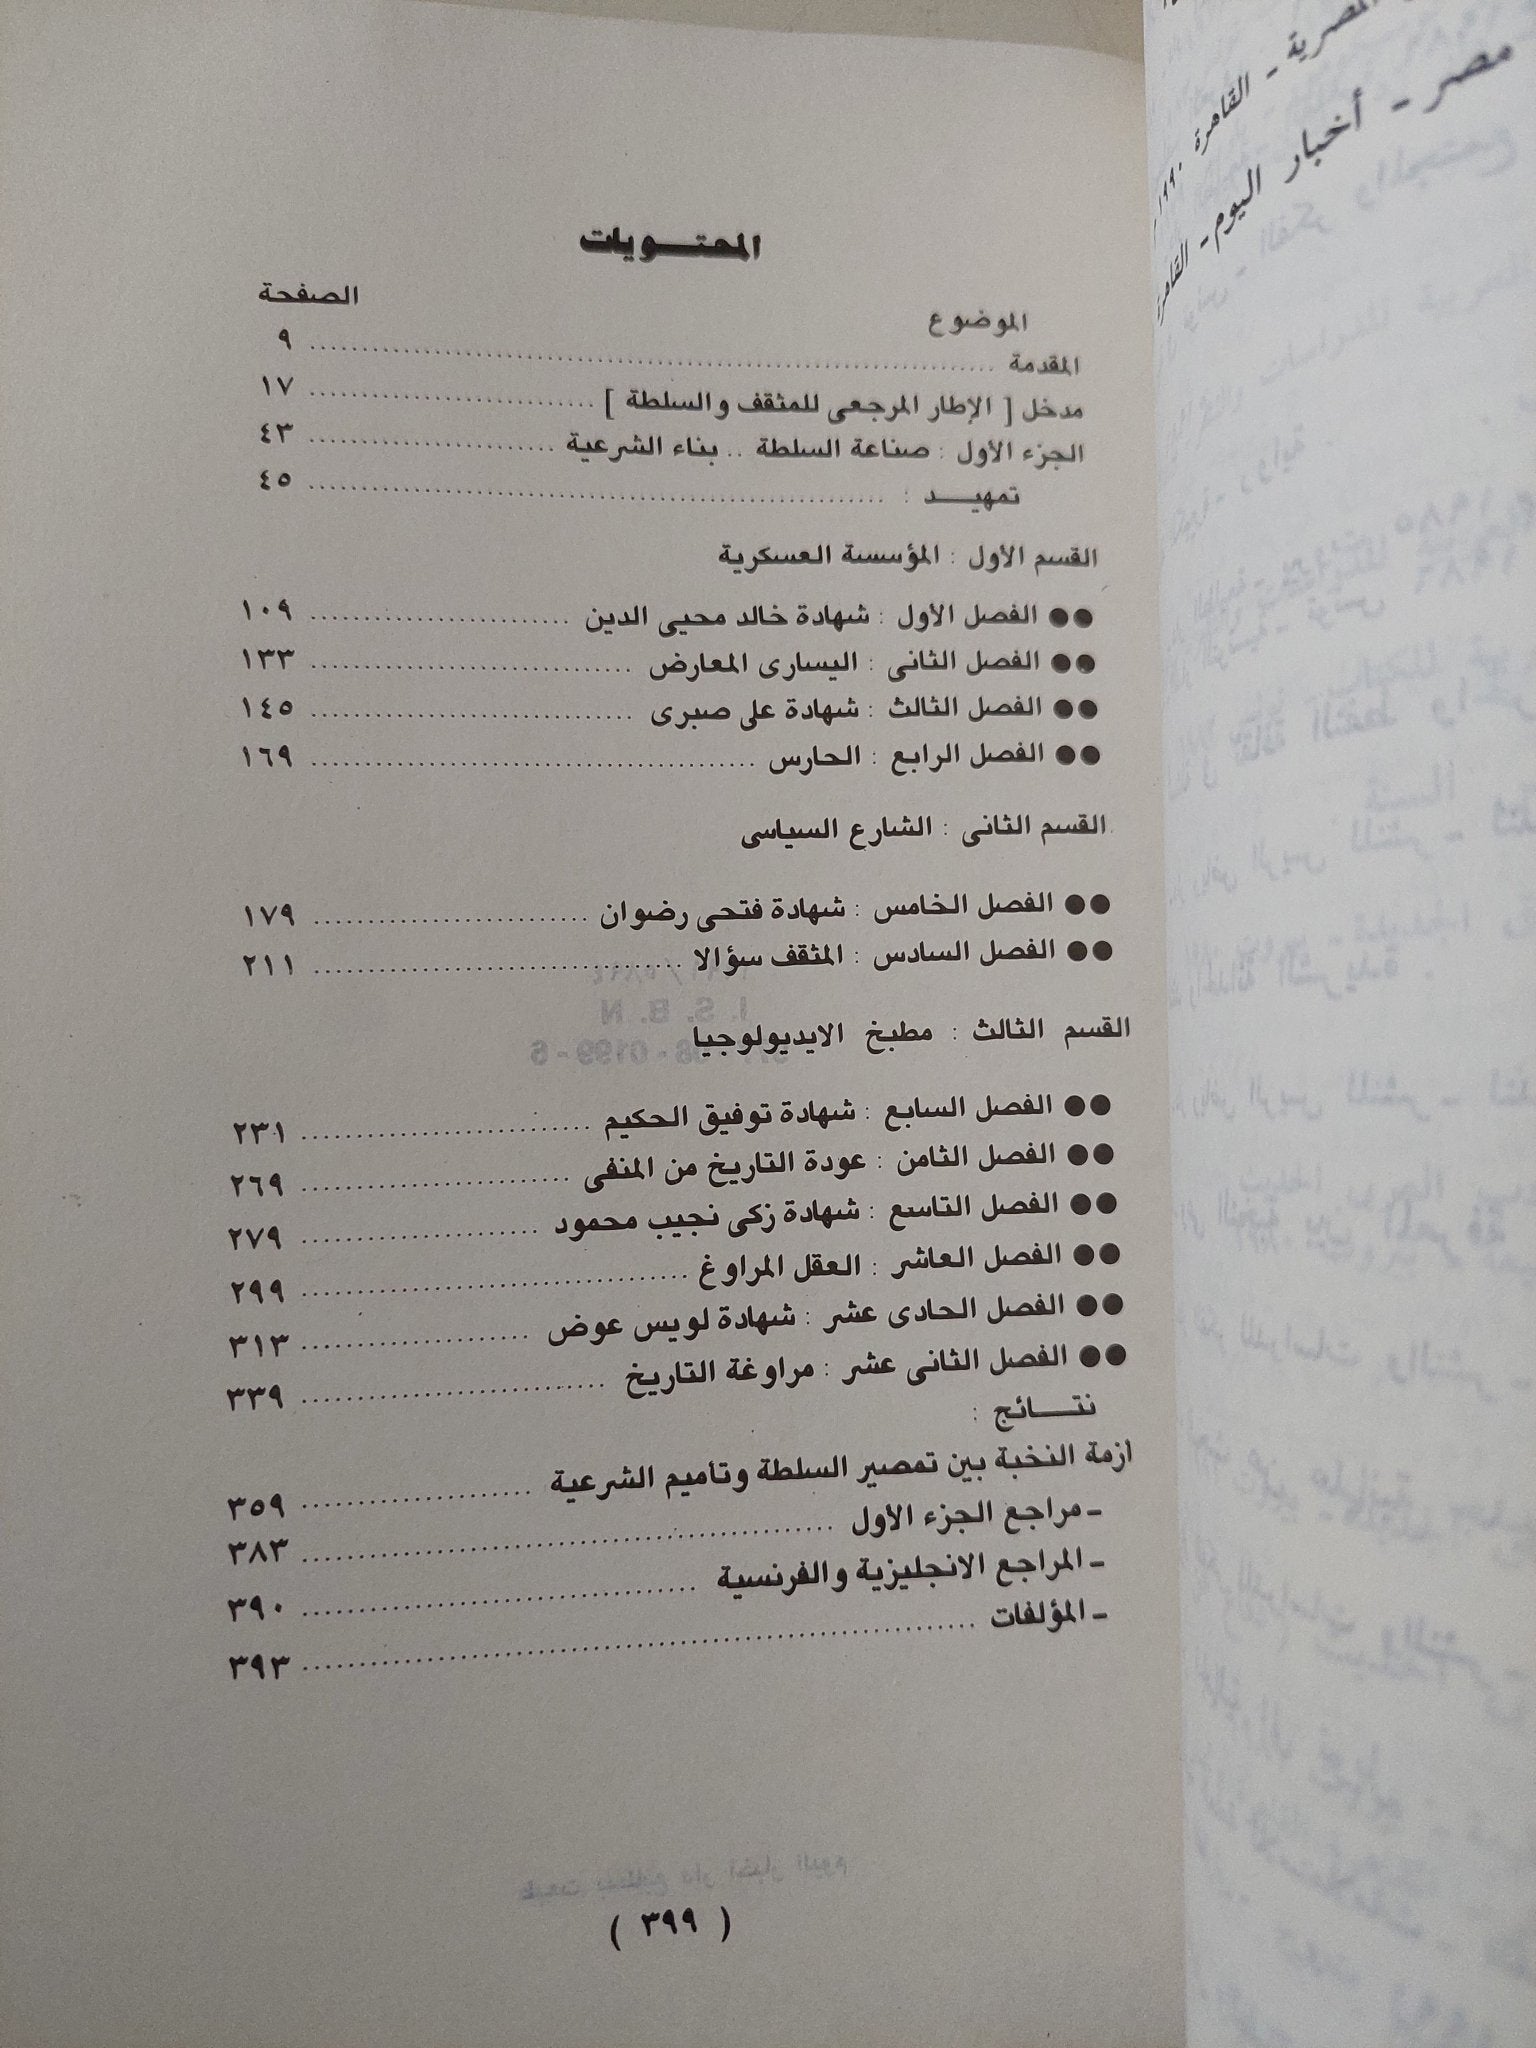 المحتويات
الموضوع الصفحة
المقدمة ........ ٩
مدخل [ الإطار المرجعى للمثقف والسلطة ] ........ ١٧
الجزء الأول : صناعة السلطة .. بناء الشرعية ........ ٤٣
تمهيد : ........ ٤٥
القسم الأول : المؤسسة العسكرية
●● الفصل الأول : شهادة خالد محيى الدين ........ ١٠٩
●● الفصل الثانى : اليسارى المعارض ........ ١٣٣
●● الفصل الثالث : شهادة على صبرى ........ ١٤٥
●● الفصل الرابع : الحارس ........ ١٦٩
القسم الثانى : الشارع السياسى
●● الفصل الخامس : شهادة فتحى رضوان ........ ١٧٩
●● الفصل السادس : المثقف سؤالا ........ ٢١١
القسم الثالث : مطبخ الايديولوجيا
●● الفصل السابع : شهادة توفيق الحكيم ........ ٢٣١
●● الفصل الثامن : عودة التاريخ من المنفى ........ ٢٦٩
●● الفصل التاسع : شهادة زكى نجيب محمود ........ ٢٧٩
●● الفصل العاشر : العقل المراوغ ........ ٢٩٩
●● الفصل الحادى عشر : شهادة لويس عوض ........ ٣١٣
●● الفصل الثانى عشر : مراوغة التاريخ ........ ٣٣٩
نتائج :
أزمة النخبة بين تمصير السلطة وتأميم الشرعية ........ ٣٥٩
- مراجع الجزء الأول ........ ٣٨٣
- المراجع الانجليزية والفرنسية ........ ٣٩٠
- المؤلفات ........ ٣٩٣
( ٣٩٩ )
المصرية - القاهرة ١٩٩٠
مصر - أخبار اليوم - القاهرة